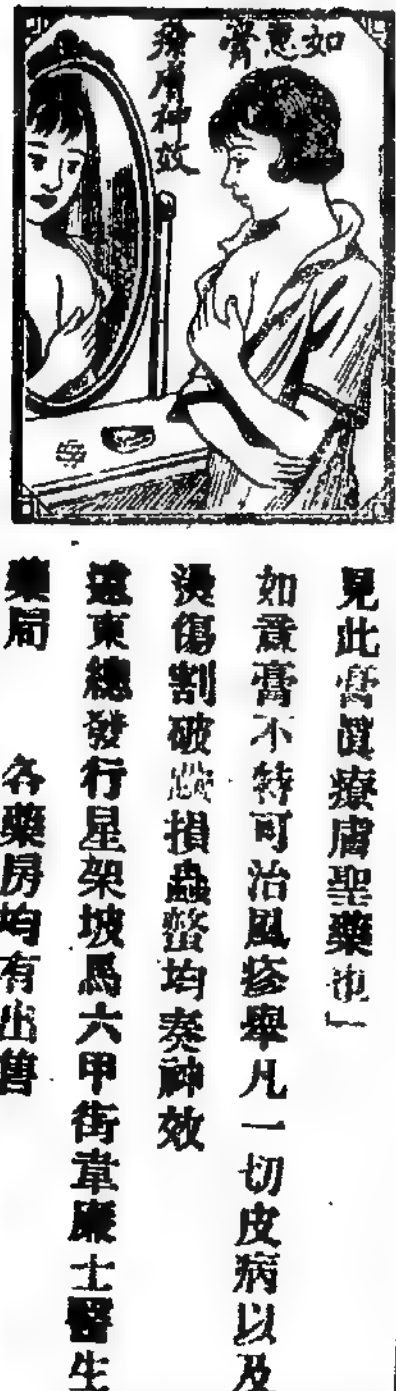 如意膏
療膚神效
見此膏眞療膚聖藥也」
如意膏不特可治風疹舉凡一切皮病以及
燙傷割破跌損蟲螫均奏神效
遠東總發行星架坡馬六甲街韋廉士醫生
藥局　各藥房均有出售